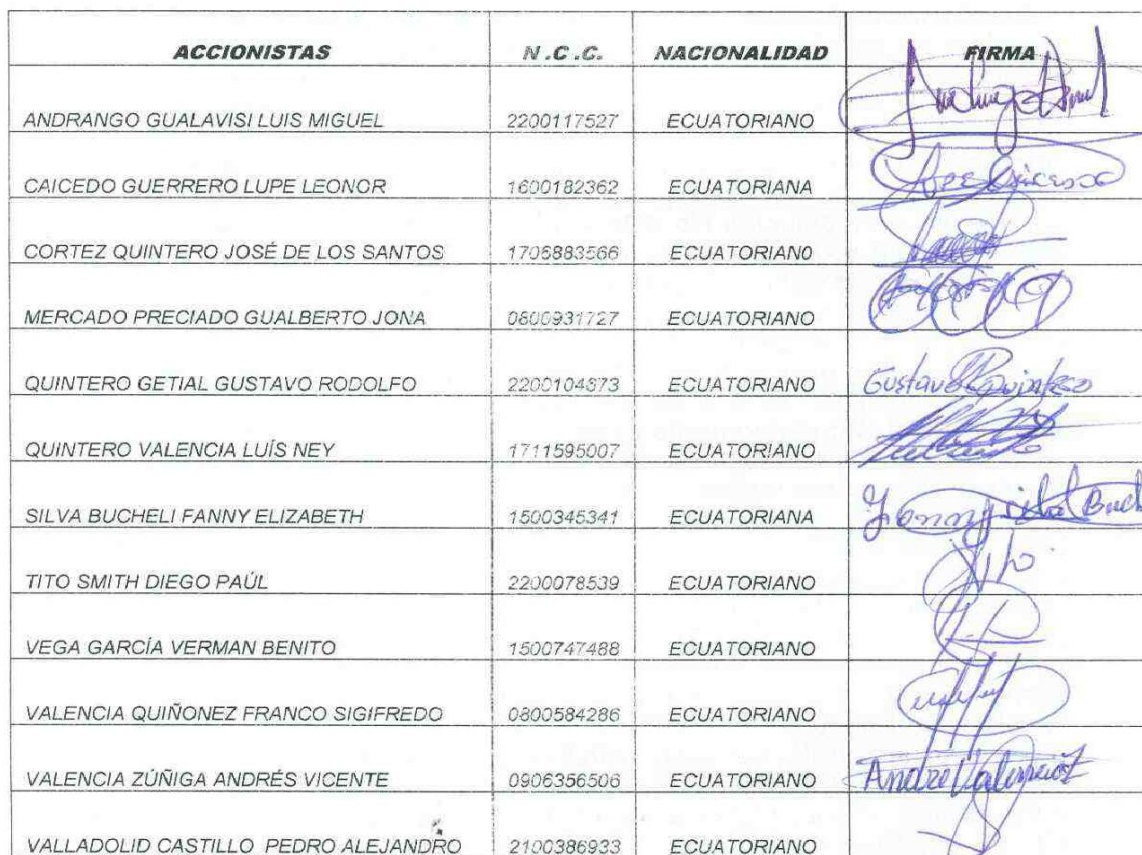 ACCIONISTAS N.C.C. NACIONALIDAD FIRMA
ANDRANGO GUALAVISI LUIS MIGUEL 2200117527 ECUATORIANO
CAICEDO GUERRERO LUPE LEONOR 1600182362 ECUATORIANA
CORTEZ QUINTERO JOSÉ DE LOS SANTOS 1706883566 ECUATORIAN0
MERCADO PRECIADO GUALBERTO JONA 0800931727 ECUATORIANO
QUINTERO GETIAL GUSTAVO RODOLFO 2200104673 ECUATORIANO Gustavo Quintero
QUINTERO VALENCIA LUÍS NEY 1711595007 ECUATORIANO
SILVA BUCHELI FANNY ELIZABETH 1500345341 ECUATORIANA
TITO SMITH DIEGO PAÚL 2200078539 ECUATORIANO
VEGA GARCÍA VERMAN BENITO 1500747488 ECUATORIANO
VALENCIA QUIÑONEZ FRANCO SIGIFREDO 0800584286 ECUATORIANO
VALENCIA ZÚÑIGA ANDRÉS VICENTE 0906356506 ECUATORIANO
VALLADOLID CASTILLO PEDRO ALEJANDRO 2100386933 ECUATORIANO